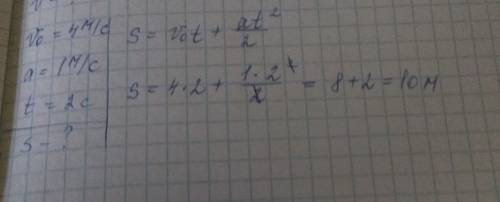 v₀ = 4 м/с
a = 1 м/с
t = 2 с
s - ?
s = v₀t + at²/2
s = 4·2 + 1·2²/2 = 8 + 2 = 10 м